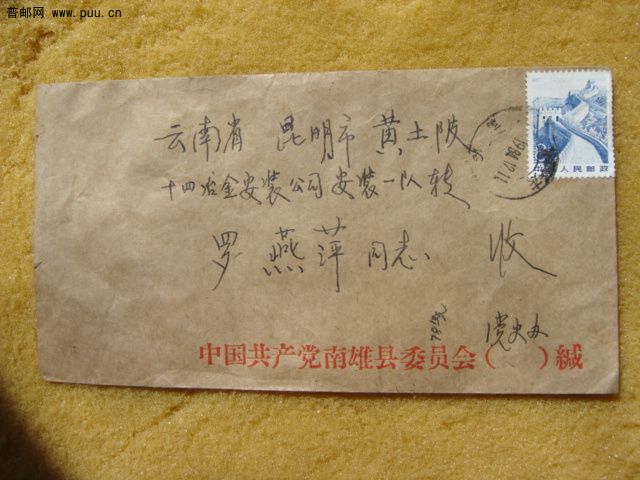 普邮网 www.puu.cn
云南省 昆明市 黄土陂
十四冶金安装公司安装一队转
罗燕萍 同志 收
党史办
中国共产党南雄县委员会（ ）缄
人民邮政